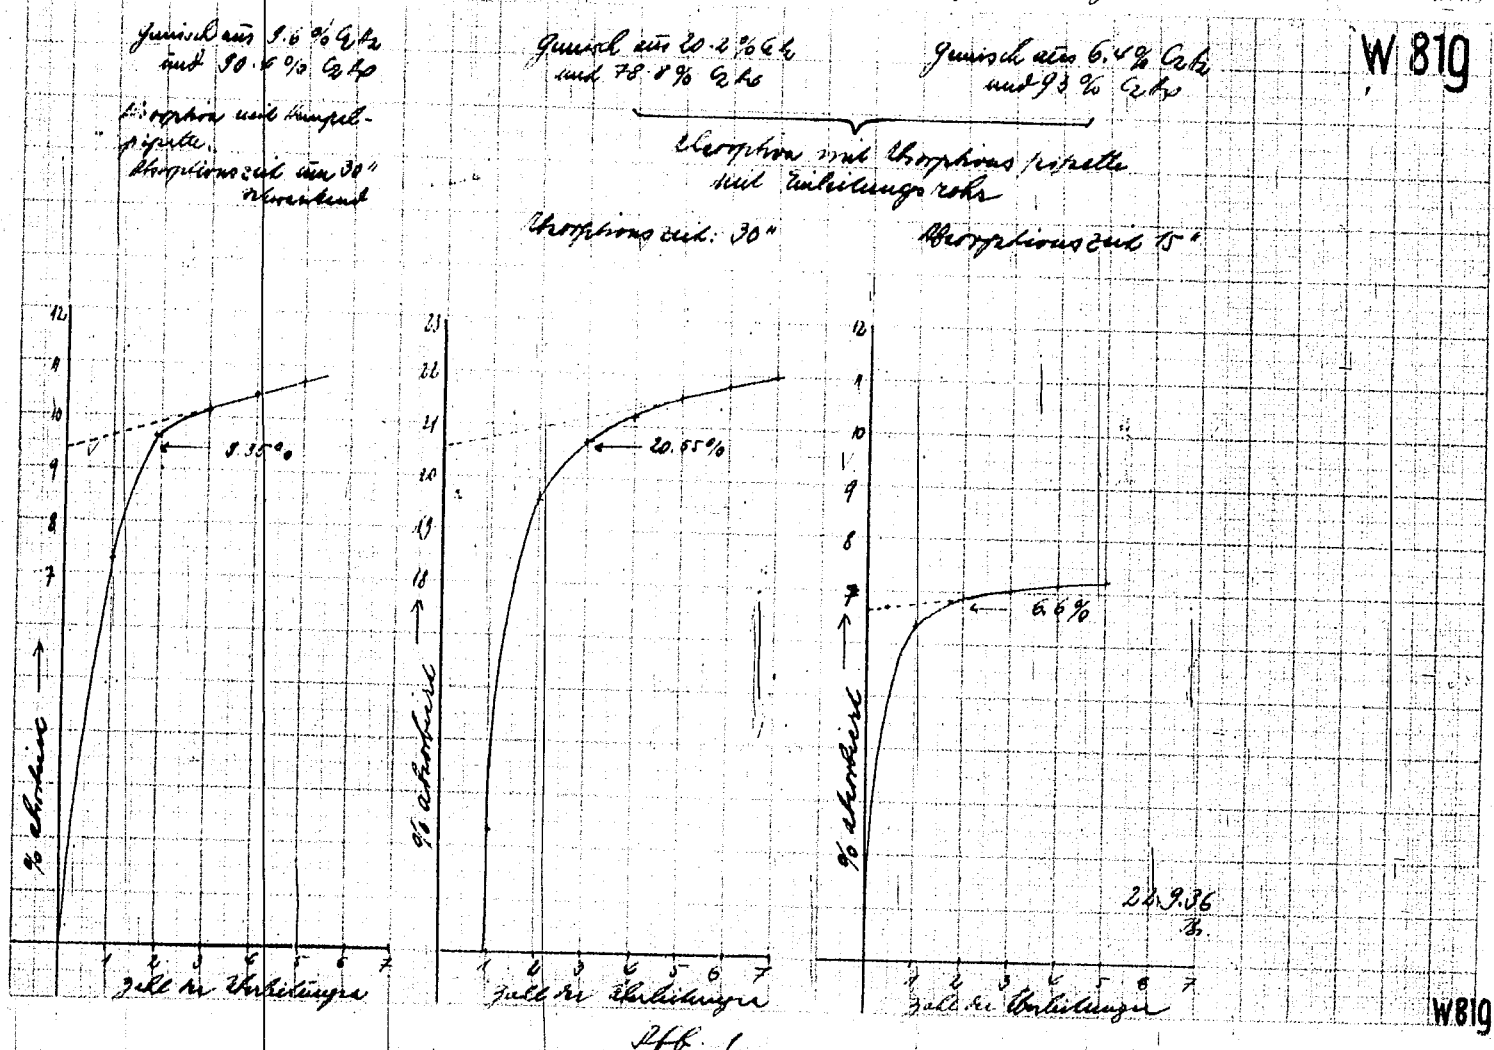 Gemisch aus 9.6 % C2H2
und 90.4 % C2H4
Absorption mit Hempel-
pipette.
Absorptionszeit um 30"
schwankend
Gemisch aus 20.2 % C2H2
und 78.8 % C2H4
Gemisch aus 6.4 % C2H2
und 93 % C2H4
W 819
Absorption mit Absorptionspipette
mit Einleitungsrohr
Absorptionszeit: 30"
Absorptionszeit 15"
12
11
10
9
8
7
9.35 %
% absorbiert
1 2 3 4 5 6 7
Zahl der Überleitungen
23
22
21
20
19
18
20.55 %
% absorbiert
1 2 3 4 5 6 7
Zahl der Überleitungen
12
11
10
9
8
7
6.6 %
% absorbiert
1 2 3 4 5 6 7
Zahl der Überleitungen
22.9.36
Abb. 1
W819